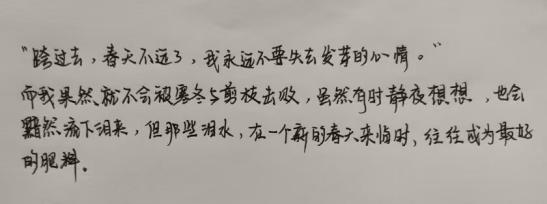 “跨过去，春天不远了，我永远不要失去发芽的心情。”
而我果然就不会被寒冬与剪枝击败，虽然有时静夜想想，也会
黯然流下泪来，但那些泪水，在一个新的春天来临时，往往成为最好
的肥料。